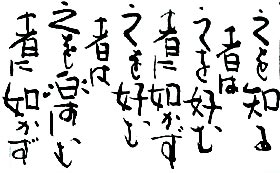 之を知る
者は
之を好む
者に如かず
之を好む
者は
之を楽しむ
者に如かず